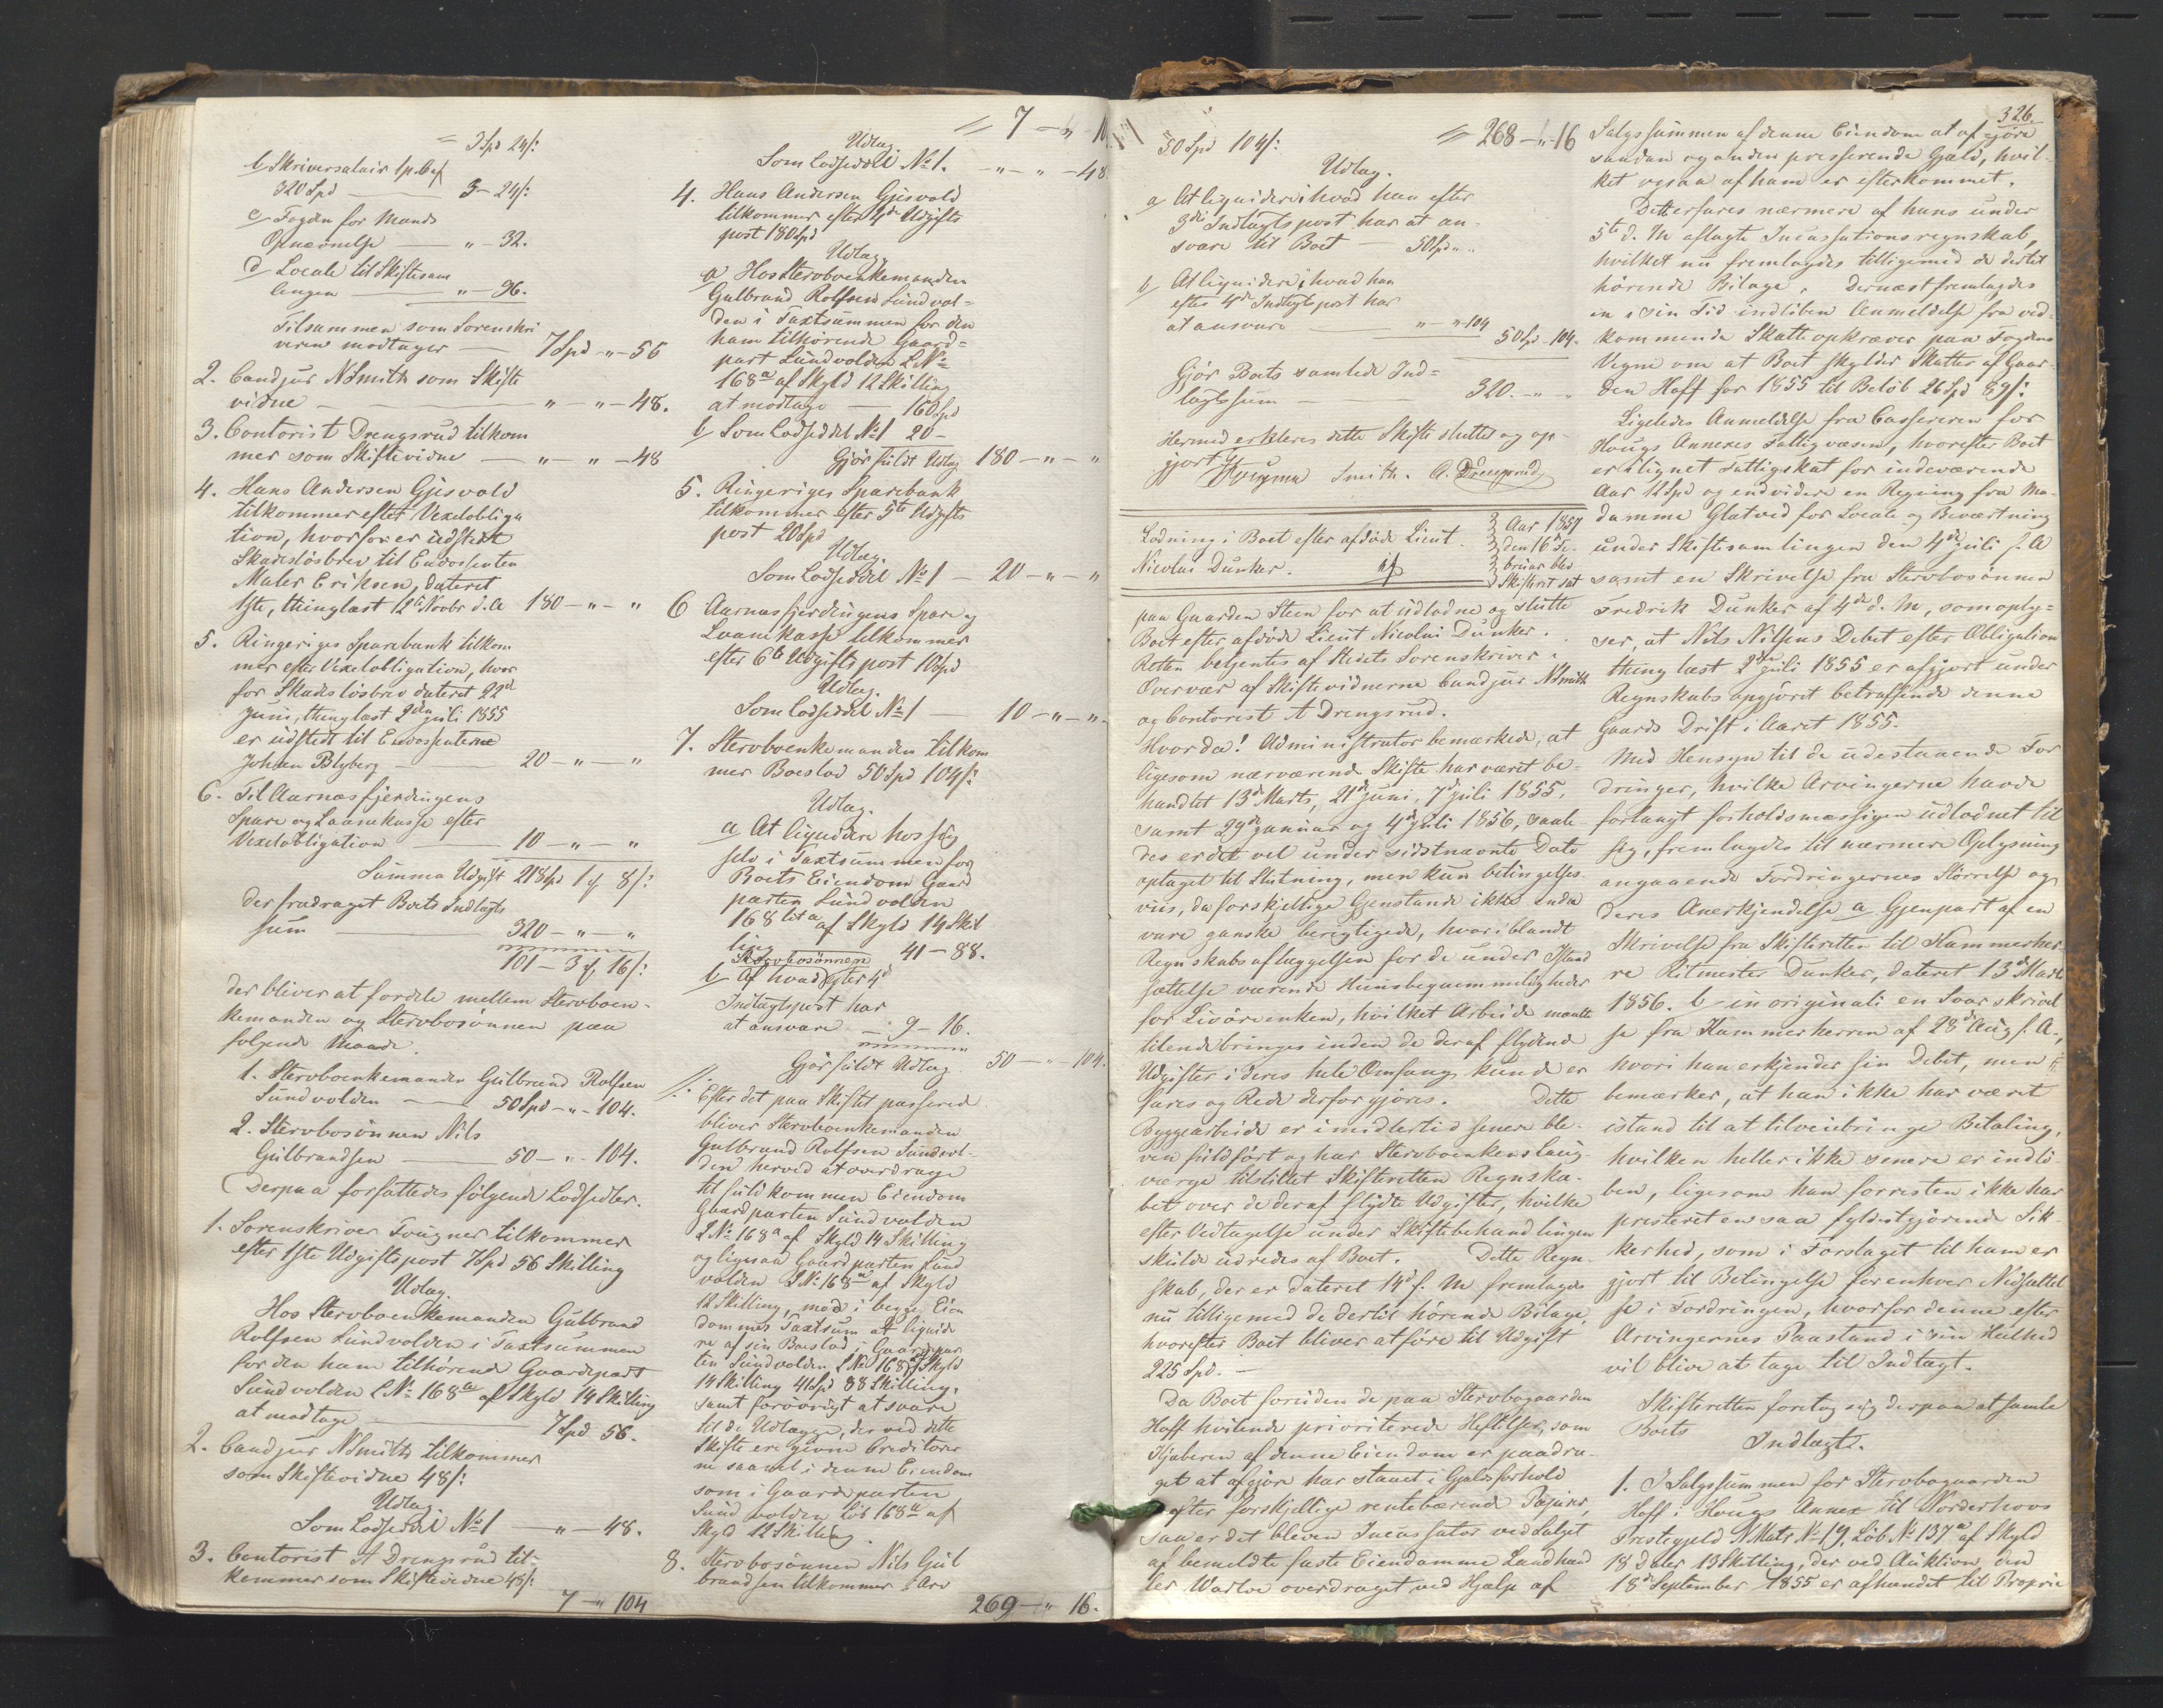 = 3 Spd 24 s:
b/ Skriversalair 1 p.C. af
320 Spd — 3 - 24 s:
c/ Fogden for Mands
Opnævnelse — " - 32.
d/ Locale til Skiftesam
lingen — " - 96.
Tilsammen som Sorenskri
veren modtager — 7 Spd - " - 56
2. Cand jur N Smith som Skifte
vidne — " - " - 48.
3. Contorist Drengsrud tilkom
mer som Skiftevidne — " - " - 48
4. Hans Andersen Gjesvold
tilkommer efter Vexelobliga
tion, hvorfor er udstedt
Skadesløsbrev til Endossenten
Maler Eriksen, dateret
1ste, thinglæst 12te Novbr d. A. 180 - " - "
5. Ringeriges Sparebank tilkom
mer efter Vexelobligation, hvor
for Skadesløsbrev dateret 22d
Juni, thinglæst 2den Juli 1855
er udstedt til Endossenterne
Johan Blyberg — 20 - " - "
6. Til Aarnæsfjerdingens
Spare og Laanekasse efter
Vexelobligation — 10 - " - "
Summa Udgift 218 Spd 1 ₰ 8 s:
der fradraget Boets Indtægts
sum — 320 - " - "
101 - 3 ₰ 16 s:
der bliver at fordele mellem Stervboen-
kemanden og Stervbosønnen paa
følgende Maade.
1. Stervboenkemanden Gulbrand Rolfsen
Sundvolden — 50 Spd - " - 104.
2. Stervbosønnen Nils
Gulbrandsen — 50 - " - 104.
Derpaa forfattedes følgende Lodsedler.
1. Sorenskriver Fougner tilkommer
efter 1ste Udgiftspost 7 Spd 56 Skilling
Udlæg.
Hos Stervboenkemanden Gulbrand
Rolfsen Sundvolden i Taxtsummen
for den ham tilhørende Gaardepart
Sundvolden L No 168a af Skyld 14 Skilling
at modtage — 7 Spd 56.
2. Cand jur N Smith tilkommer
som Skiftevidne 48 s:
Udlæg.
Som Lodseddel No 1 — " - 48.
3. Contorist A Drengsrud til-
kommer som Skiftevidne 48 s:
7 - " 104
= 7 - " 10
Udlæg.
Som Lodseddel No 1. - " - " - 48.
4. Hans Andersen Gjesvold
tilkommer efter 4de Udgifts
post 180 Spd
Udlæg.
a/ Hos Stervboenkemanden
Gulbrand Rolfsen Sundvol-
den i Taxtsummen for den
ham tilhørende Gaard-
part Sundvolden L No
168a af Skyld 12 Skilling
at modtage — 160 Spd
b/ Som Lodseddel No 1 20 -
Gjør fuldt Udlæg 180 - " - "
5. Ringeriges Sparebank
tilkommer efter 5te Udgifts
post 20 Spd
Udlæg.
Som Lodseddel No 1 — 20 - " - "
6 Aarnæsfjerdingens Spare og
Laanekasse tilkommer
efter 6te Udgiftspost 10 Spd
Udlæg.
Som Lodseddel No 1 — 10 - " - "
7. Stervboenkemanden tilkom
mer Boeslod 50 Spd 104 s:
Udlæg.
a At liqvidere hos sig
selv i Taxtsummen for
Boets Eiendom Gaard
parten Sundvolden
168 lit a af Skyld 14 Skil
ling — 41 - 88.
b/ Af hvad Stervbosønnen efter 4d
Indtægtspost har
at ansvare — 9 - 16.
Gjør fuldt Udlæg 50 - " - 104.
Efter det paa Skiftet passerede
bliver Stervboenkemanden
Gulbrand Rolfsen Sundvol-
den herved at overdrage
til fuldkommen Eiendom
Gaardparten Sundvolden
L No 168a af Skyld 14 Skilling
og ligesaa Gaardparten Sund
volden L No 168a af Skyld
12 Skilling, mod i begge Eien
dommes Taxtsum at liqvide
re af sin Boeslod i Gaardpar
ten Sundvolden, L No 168a af Skyld
14 Skilling 41 Spd 88 Skilling,
samt forøvrigt at svare
til de Udlægge, der ved dette
Skifte ere givne Creditorer
ne saavel i denne Eiendom
som i Gaardparten
Sundvolden Løb 168a af
Skyld 12 Skilling.
8. Stervbosønnen Nils Gul
brandsen tilkommer Arv
269 - " 16.
50 Spd 104 s:
= 268 - " - 16
Udlæg.
a/ At liqvidere i hvad han efter
3die Indtægtspost har at an-
svare til Boet — 50 Spd " "
b/ At liqvidere i hvad han
efter 4de Indtægtspost har
at ansvare — " - " 104
50 Sp - 104.
Gjør Boets samlede Ind-
tægtssum — 320. - " "
Hermed erklæres dette Skifte sluttet og op-
gjort. Fougner Smith. A. Drengsrud
Lodning i Boet efter afdøde Lieut.
Nicolai Dunker.
Aar 1857
den 16 Fe-
bruar blev
Skifteret sat
paa Gaarden Steen for at udlodne og slutte
Boet efter afdøde Lieut Nicolai Dunker.
Retten betjentes af Stedets Sorenskriver i
Overvær af Skiftevidnerne Cand jur N Smith
og Contorist A Drengsrud.
Hvorda! Administrator bemærkede, at
ligesom nærværende Skifte har været be-
handlet 13de Marts, 21de Juni, 7de Juli 1855,
samt 29de Januar og 4de Juli 1856, saale-
des er det vel under sidstnævnte Dato
optaget til Slutning, men kun betingelses-
viis, da forskjellige Gjenstande ikke endnu
vare ganske berigtigede, hvoriblandt
Regnskabsaflæggelsen for de under Istand
sættelse værende Huusbeqvemmeligheder
for Livøreenken, hvilket Arbeide maatte
tilendebringes inden de deraf flydende
Udgifter i deres hele Omfang kunde er
fares og Rede derfor gjøres. Dette
Byggearbeide er imidlertid senere ble-
ven fuldført og har Stervboenkens Laug-
værge tilstillet Skifteretten Regnska-
bet over de deraf flydte Udgifter, hvilke
efter Vedtagelse under Skiftebehandlingen
skulde udredes af Boet. Dette Regn-
skab, der er dateret 14d f. M fremlagdes
nu tilligemed de dertil hørende Bilage,
hvorefter Boet bliver at føre til Udgift
225 Spd. —
Da Boet foruden de paa Stervbogaarden
Hoff hvilende prioriterede Heftelser, som
Kjøberen af denne Eiendom er paadra-
get at afgjøre har staaet i Gjældsforhold
efter forskjellige rentebærende Papirer,
saa er det bleven Incassator ved Salget
af bemeldte faste Eiendomme Landhand
ler Warloe overdraget ved Hjælp af
326.
Salgssummen af denne Eiendom at afgjøre
saadan og anden presserende Gjæld, hvil-
ket ogsaa af ham er efterkommet.
Det erfares nærmere af hans under
5te d. M aflagte Incassationsregnskab,
hvilket nu fremlagdes tilligemed de dertil
hørende Bilage. Dernæst fremlagdes
en i sin Tid indløben Anmeldelse fra ved-
kommende Skatteopkræver paa Fogdens
Vegne om at Boet skylder Skatter af Gaar-
den Hoff for 1855 til Beløb 26 Spd 89 s:
Ligeledes Anmeldelse fra Cassereren for
Hougs Annexes Fattigvæsen, hvorefter Boet
er ilignet Fattigskat for indeværende
Aar 12 Spd og endvidere en Regning fra Ma-
damme Glatved for Locale og Beværtning
under Skiftesamlingen den 4de Juli f. A
samt en Skrivelse fra Stervbosønnen
Fredrik Dunker af 4de d. M, som oply-
ser, at Nils Nilsens Debet efter Obligation
thinglæst 2den Juli 1855 er afgjort under
Regnskabsopgjøret betræffende denne
Gaards Drift i Aaret 1855.
Med Hensyn til de udestaaende For
dringer, hvilke Arvingerne havde
forlangt forholdsmæssigen udlodnet til
sig, fremlagdes til nærmere Oplysning
angaaende Fordringernes Størrelse og
deres Anerkjendelse a Gjenpart af en
Skrivelse fra Skifteretten til Kammerher
re Ritmester Dunker, dateret 13de Marts
1856. b/ in originali en Svarskrivel
se fra Kammerherren af 28de Aug f. A.,
hvori han erkjender sin Debet, men
bemærker, at han ikke har været
istand til at tilveiebringe Betaling,
hvilken heller ikke senere er indlø-
ben, ligesom han forresten ikke har
præsteret en saa fyldestgjørende Sik-
kerhed, som i Forslaget til ham er
gjort til Betingelse for enhver Nedsættel
se i Fordringen, hvorfor denne efter
Arvingernes Paastand i sin Heelhed
vil blive at tage til Indtægt.
Skifteretten foretog sig derpaa at samle
Boets Indtægt.
1. I Salgssummen for Stervbogaarden
Hoff i Hougs Annex til Norderhovs
Præstegjeld N Matr. No 19, Løb. No 137a af Skyld
18 Daler 13 Skilling, der ved Auktion den
18de September 1855 er afhændet til Proprie